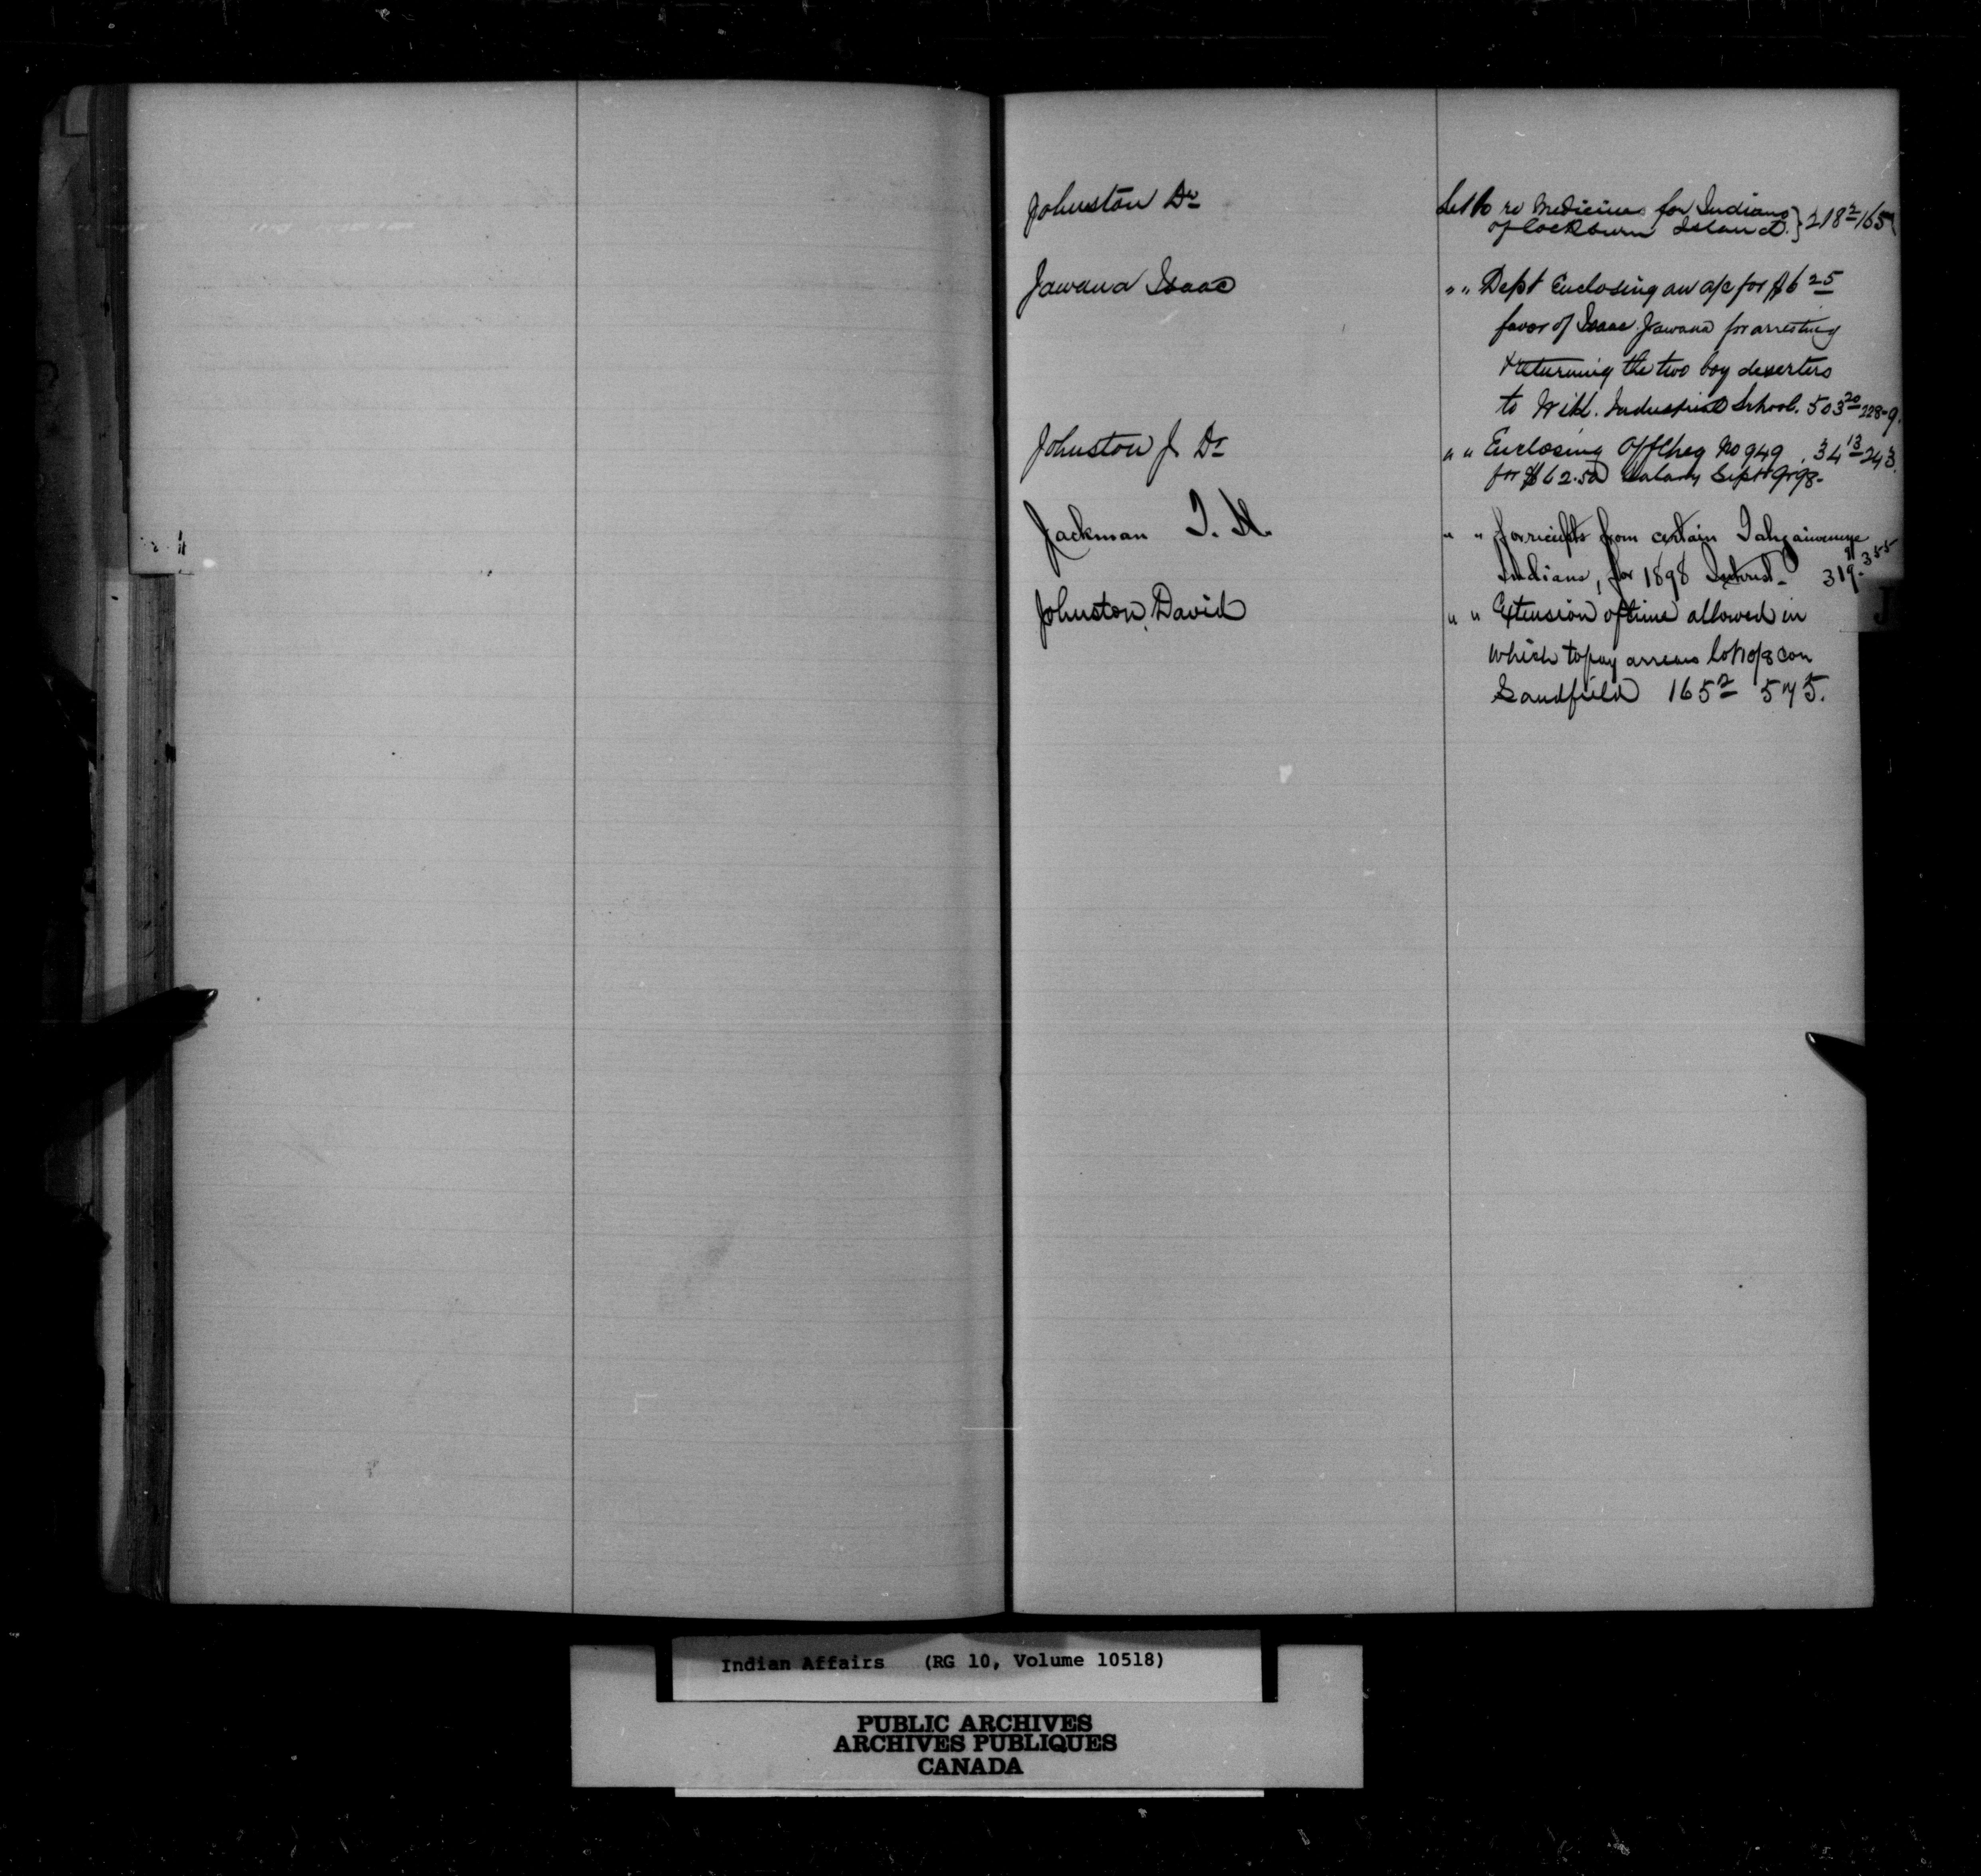 Johnston Dr
Let to re Medicines for Indians
of Cockburn Island. } 218 2/165
Jawana Isaac
" " Dept Enclosing an a/c for $6 25
favor of Isaac Jawana for arresting
& returning the two boy deserters
to Wik. Industrial School. 503 20 228-9.
Johnston J Dr
" " Enclosing Off Cheq No 949 . 34 13 243.
for $62.50 Salary Sept 98-
Jackman T. H.
" " for reciepts from certain Tahgaiwenene
Indians, for 1898 Interest- 319. 9 355
Johnston, David
" " Extension of time allowed in
which to pay arrears lot 10/8 con
Sandfield 165 2 575.
J
Indian Affairs (RG 10, Volume 10518)
PUBLIC ARCHIVES
ARCHIVES PUBLIQUES
CANADA